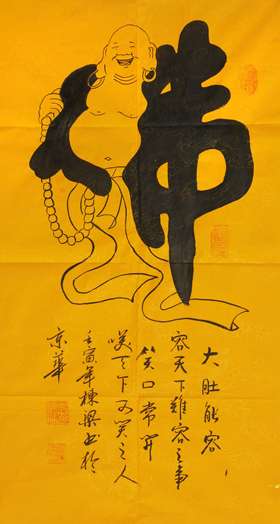 佛
大肚能容，
容天下难容之事
笑口常开
咲天下可笑之人
壬寅年栋梁书於
京華